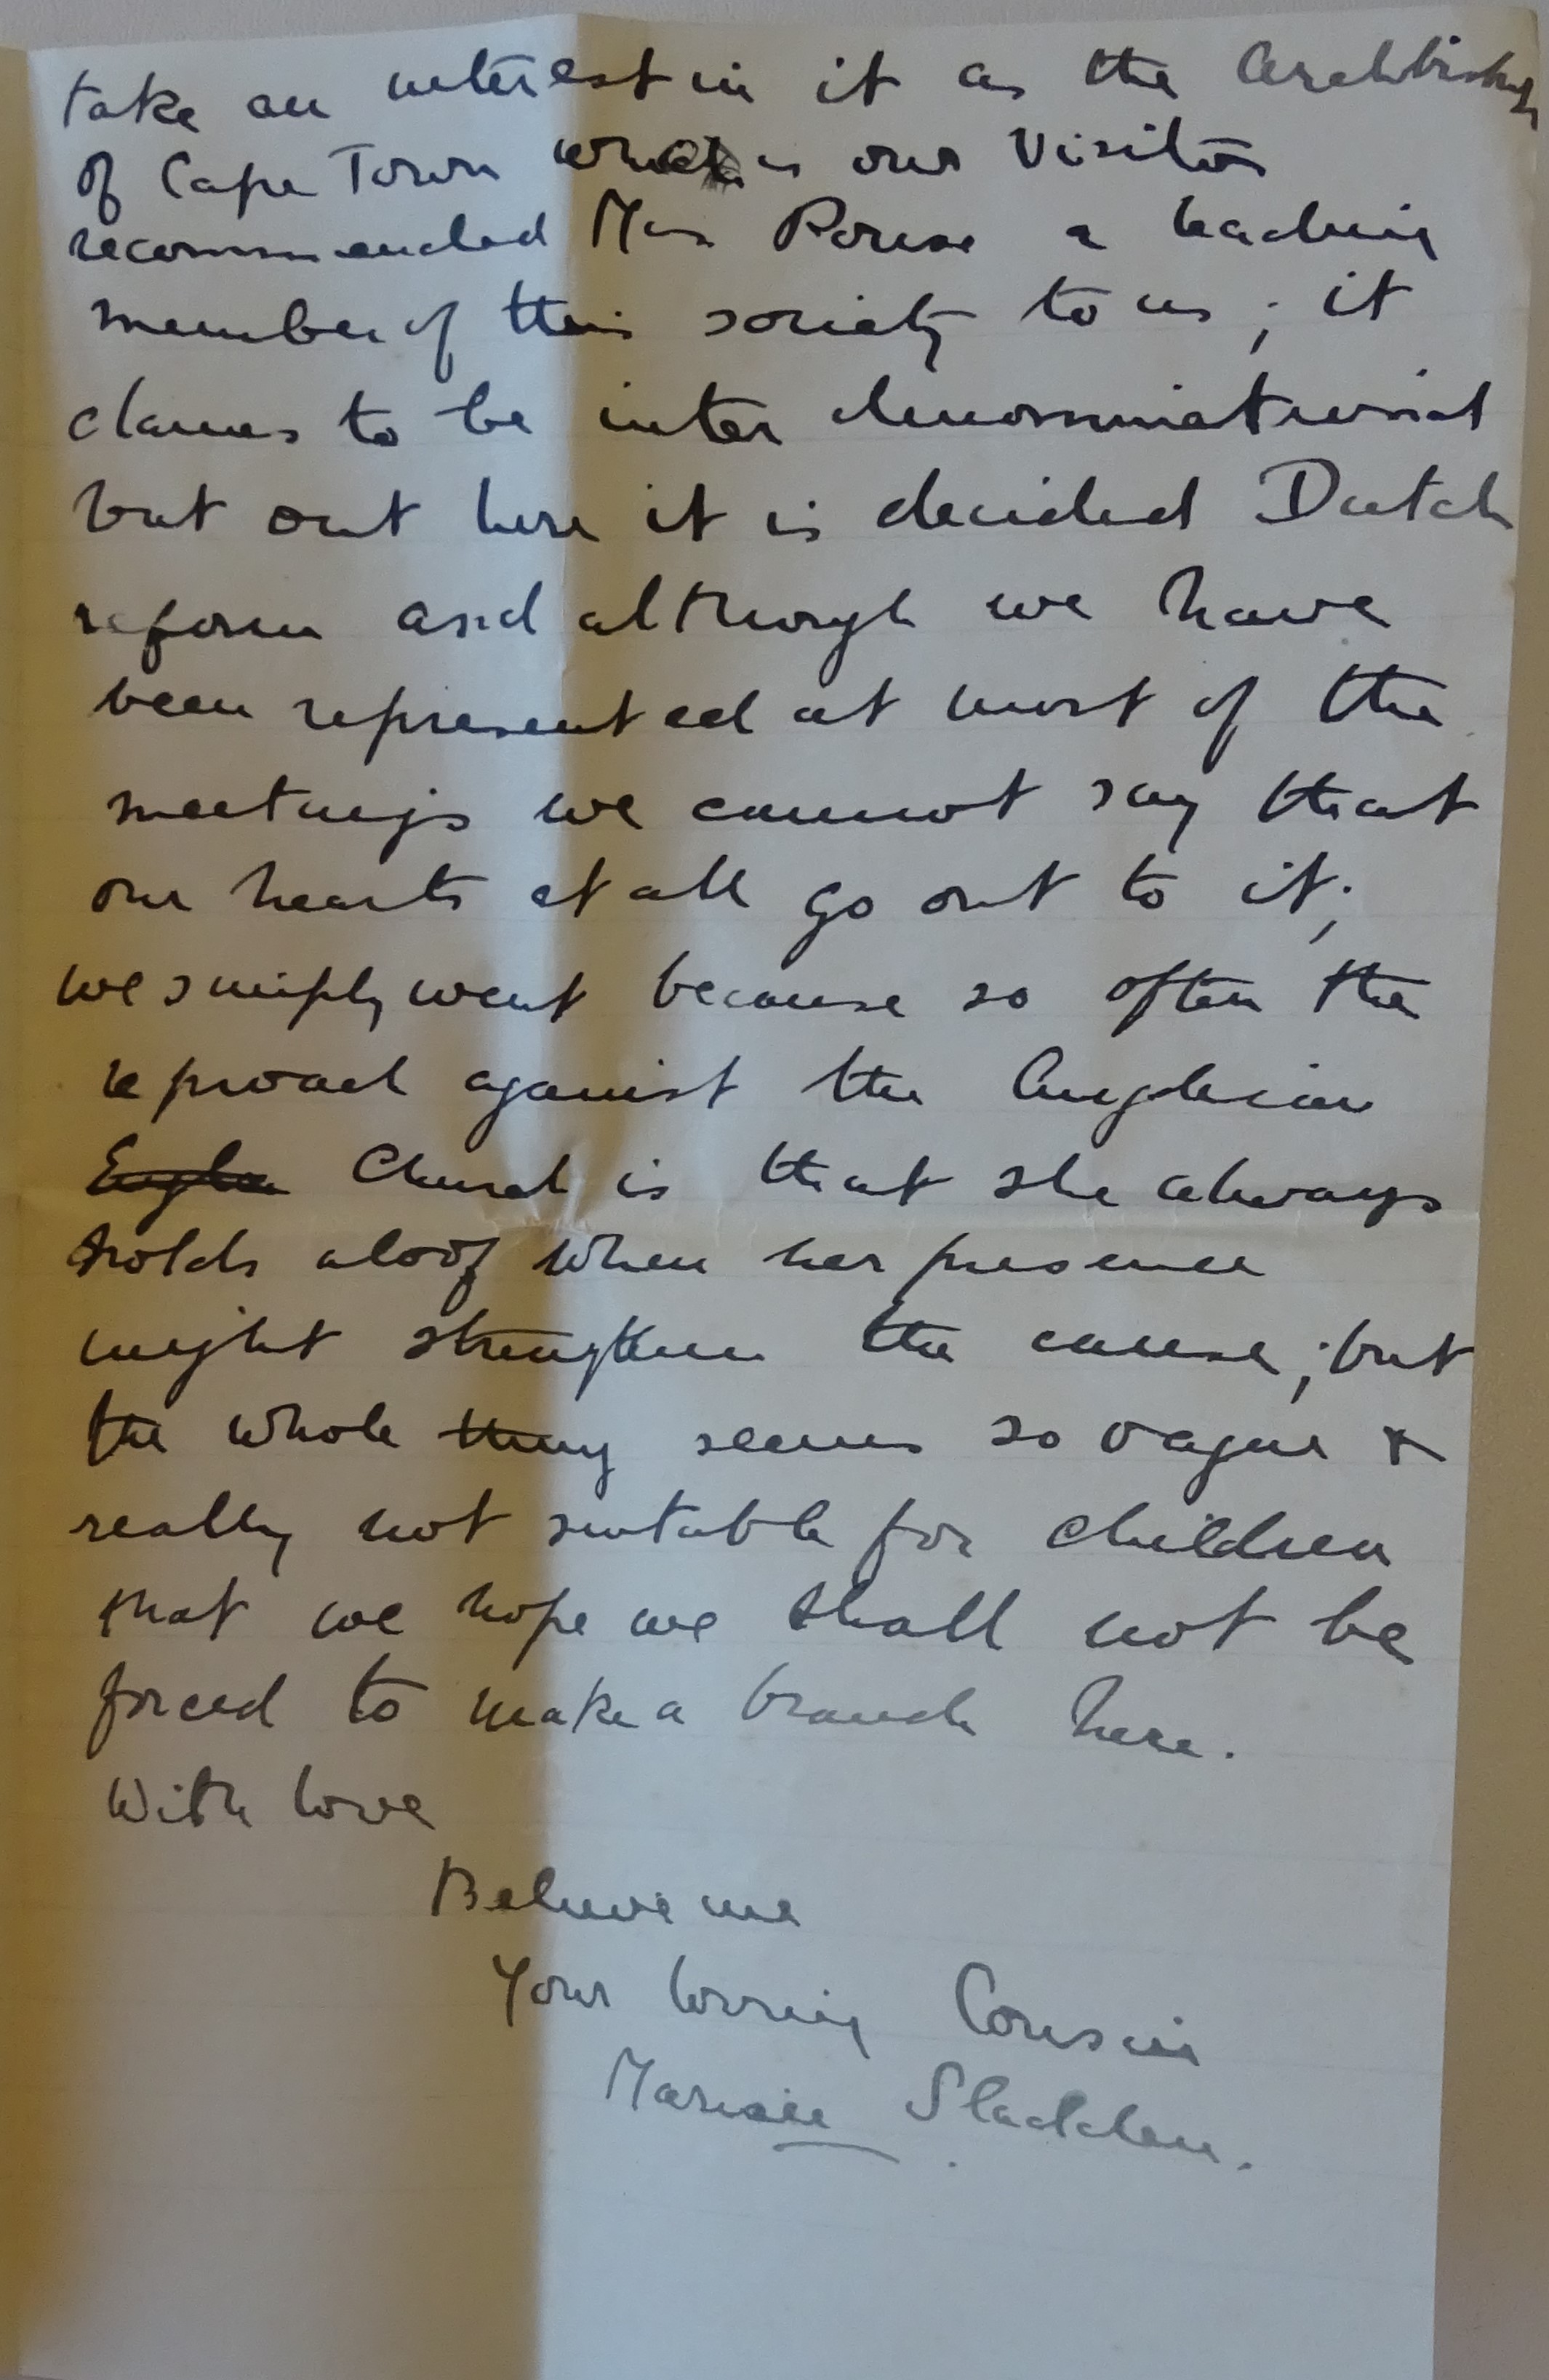 take an interest in it as the Archbishop
of Cape Town who is our Visitor
recommended Miss Rouse a leading
member of this society to us ; it
claims to be inter denominational
but out here it is decided Dutch
reform and although we have
been represented at most of the
meetings we cannot say that
our hearts at all go out to it ;
we simply went because so often the
reproach against the Anglican
Church is that she always
holds aloof when her presence
might strengthen the cause ; but
the whole thing seems so vague &
really not suitable for children
that we hope we shall not be
forced to make a branch here.
With love
Believe me
Your loving Cousin
Sladden.